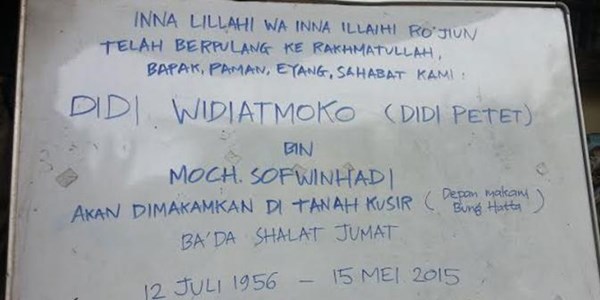 INNA LILLAHI WA INNA ILLAIHI RO'JIUN
TELAH BERPULANG KE RAKHMATULLAH,
BAPAK, PAMAN, EYANG, SAHABAT KAMI :
DIDI WIDIATMOKO (DIDI PETET)
BIN
MOCH. SOFWINHADI
AKAN DIMAKAMKAN DI TANAH KUSIR (Depan Makam Bung Hatta)
BA'DA SHALAT JUMAT
12 JULI 1956 - 15 MEI 2015